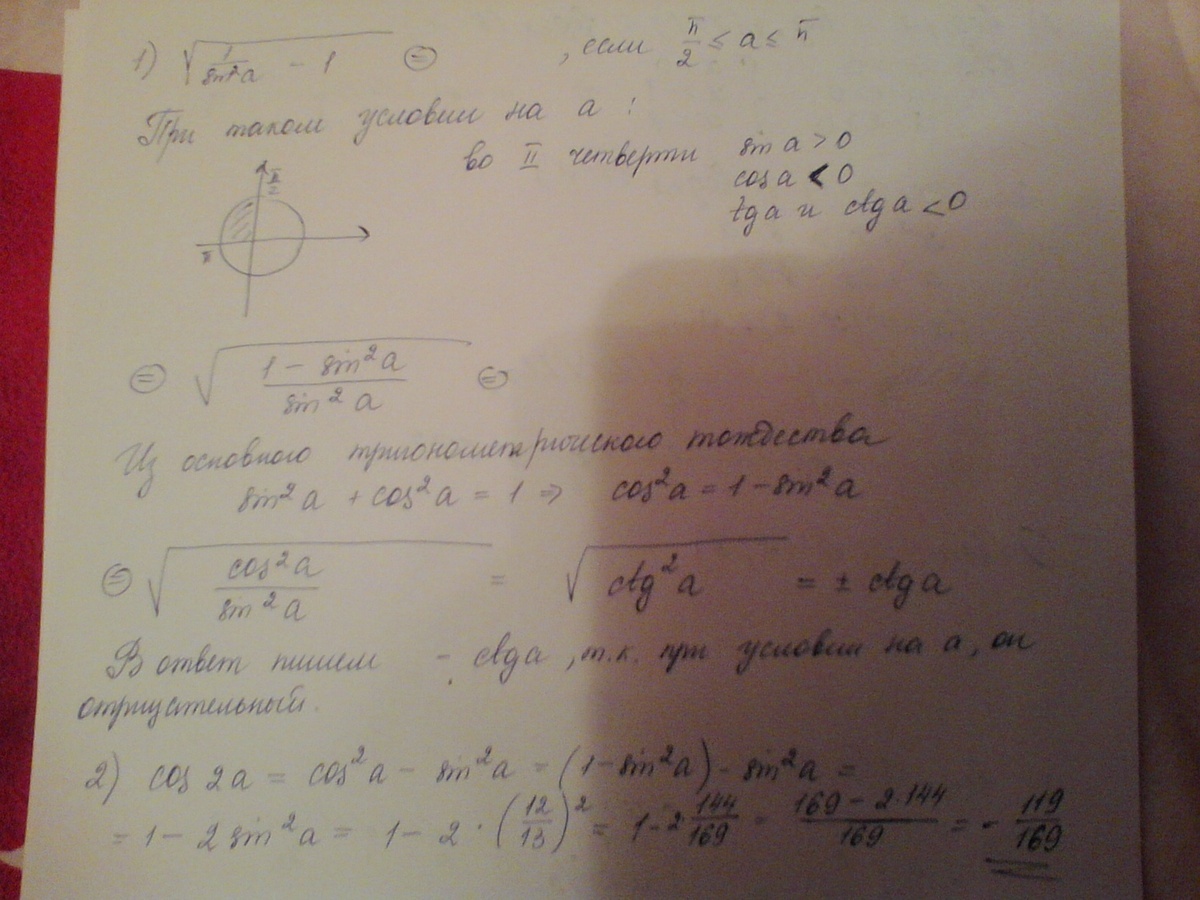 1) √(1/sin²a - 1) ⊜ , если π/2 ≤ a ≤ π
При таком условии на a :
во II четверти sin a > 0
cos a < 0
tg a и ctg a < 0
π/2
π
⊜ √((1 - sin²a)/(sin²a)) ⊜
Из основного тригонометрического тождества
sin²a + cos²a = 1 ⇒ cos²a = 1 - sin²a
⊜ √(cos²a/sin²a) = √(ctg²a) = ± ctg a
В ответ пишем - ctg a, т.к. при условии на a, он
отрицательный.
2) cos 2a = cos²a - sin²a = (1 - sin²a) - sin²a =
= 1 - 2 sin²a = 1 - 2 · (12/13)² = 1 - 2 · 144/169 = (169 - 2 · 144)/169 = - 119/169